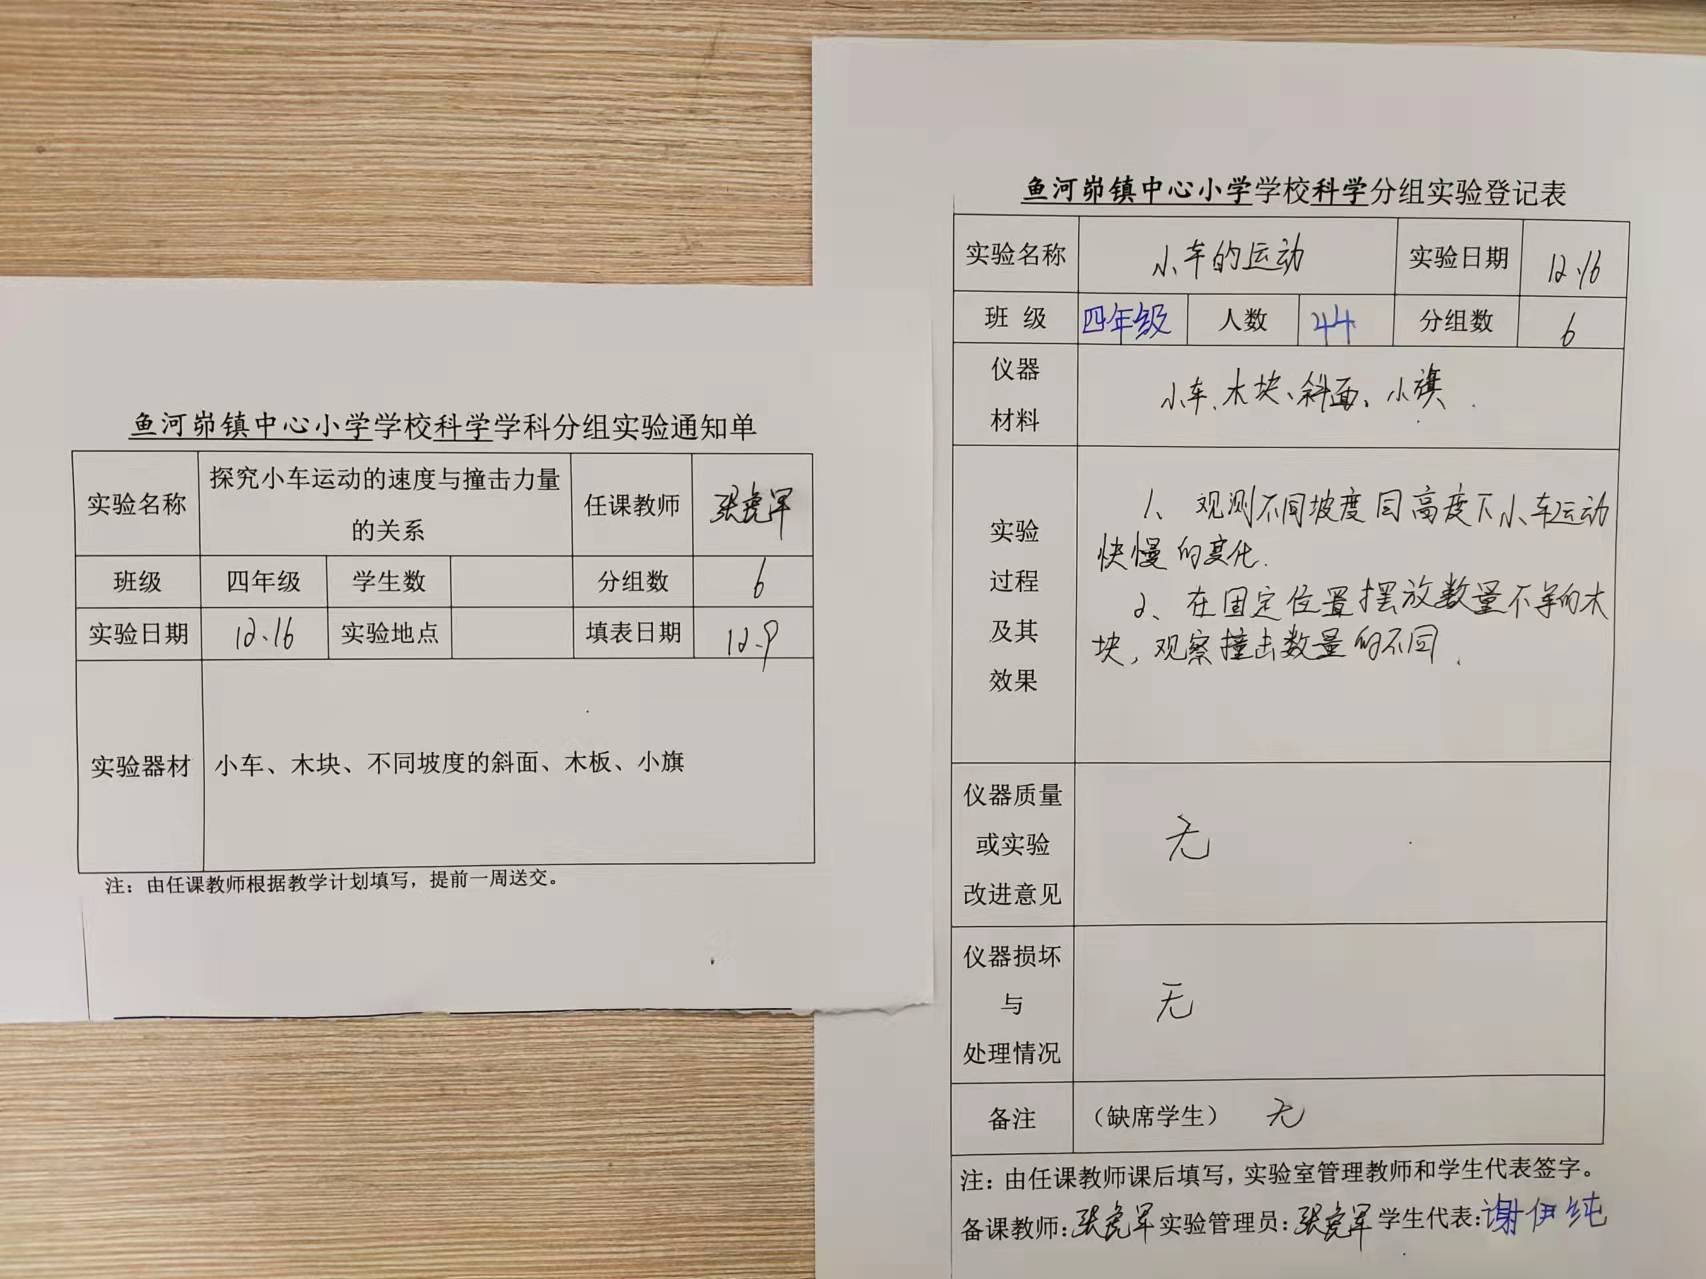 鱼河峁镇中心小学学校科学学科分组实验通知单
实验名称 探究小车运动的速度与撞击力量的关系 任课教师 张虎军
班级 四年级 学生数 分组数 6
实验日期 12.16 实验地点 填表日期 12.9
实验器材 小车、木块、不同坡度的斜面、木板、小旗
注：由任课教师根据教学计划填写，提前一周送交。
鱼河峁镇中心小学学校科学分组实验登记表
实验名称 小车的运动 实验日期 12.16
班 级 四年级 人数 44 分组数 6
仪器材料 小车、木块、斜面、小旗.
实验过程及其效果
1、观测不同坡度同高度下小车运动
快慢的变化.
2、在固定位置摆放数量不等的木
块，观察撞击数量的不同.
仪器质量或实验改进意见 无
仪器损坏与处理情况 无
备注 （缺席学生） 无
注：由任课教师课后填写，实验室管理教师和学生代表签字。
备课教师：张虎军 实验管理员：张虎军 学生代表：谢伊纯